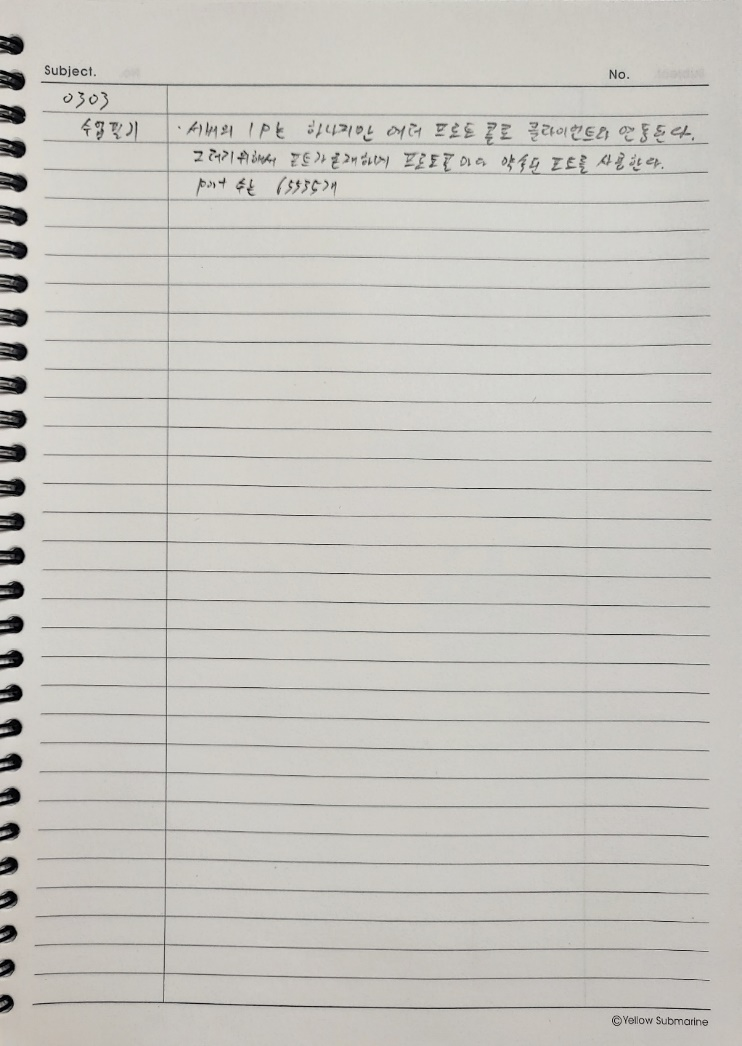 Subject.
No.
0303
수업필기
· 서버의 IP는 하나지만 여러 프로토콜로 클라이언트와 연동된다.
그러기 위해서 포트가 존재하며 프로토콜 마다 약속된 포트를 사용한다.
port 수는 65535개
©Yellow Submarine